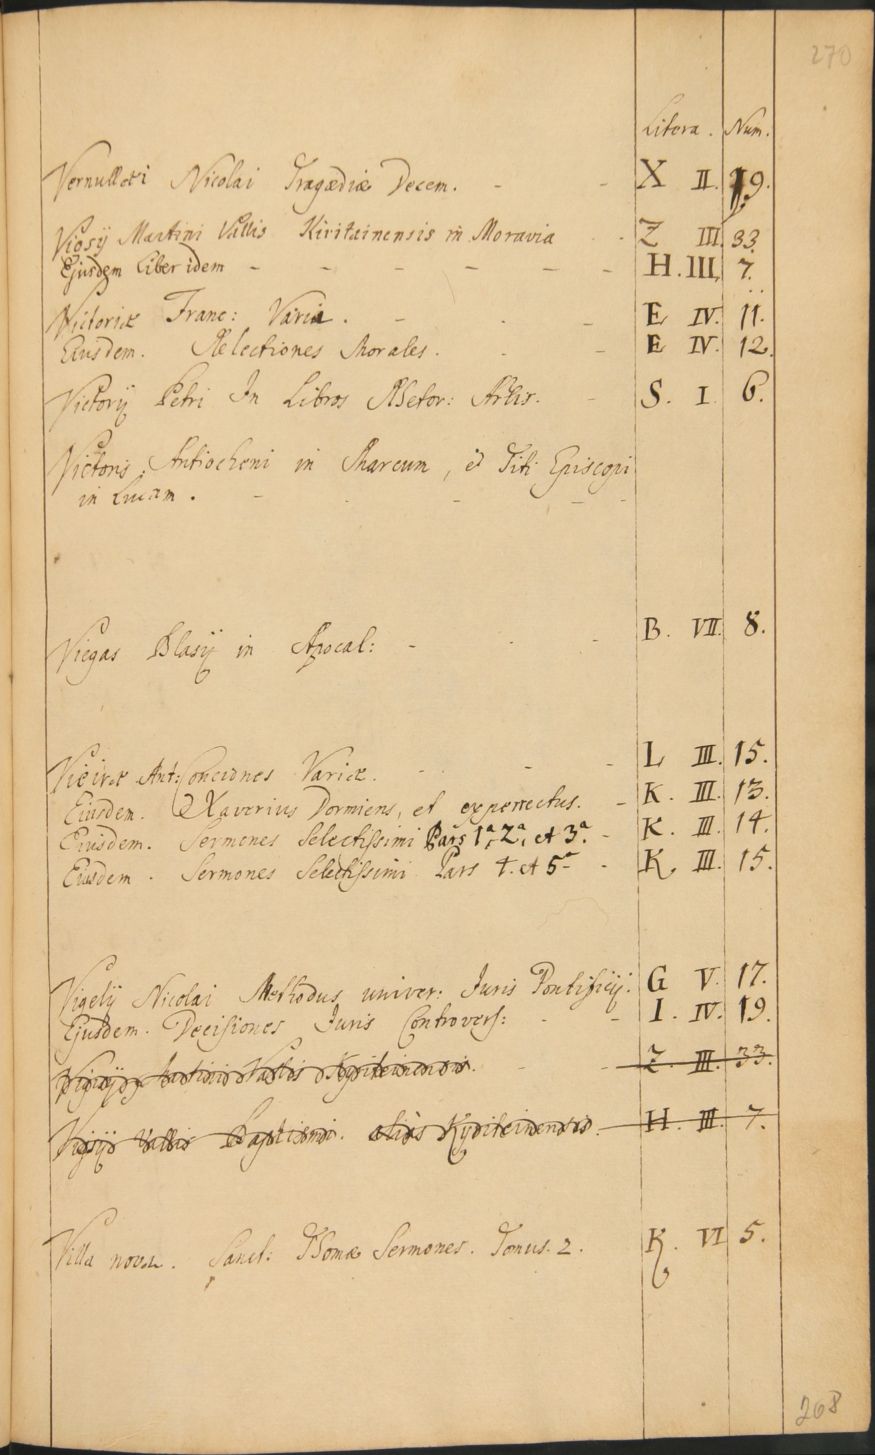 270
Litera. Num.
Vernullæi Nicolai Tragædiæ Decem. - - X II. 19.
Viosij Martini Vallis Kiritainensis in Moravia - - Z III. 33.
Ejusdem Liber idem - - - - - - H. III. 7.
Victoriæ Franc: Varia. - - - E IV. 11.
Eiusdem. Relectiones Morales. - - E IV. 12.
Victorij Petri In Libros Rhetor: Artis. - S. I. 6.
Victoris Antiocheni in Marcum, et Titi Episcopi
in Lucam. - - - - -
Viegas Blasij in Apocal: - - - B. VII. 8.
Vieiræ Ant: Conciones Variæ. - - - L III. 15.
Eiusdem. Xaverius Dormiens, et experrectus. - K. III. 13.
Eiusdem. Sermones Selectissimi Pars 1ª, 2ª, et 3ª. - K. III. 14.
Eiusdem. Sermones Selectissimi Pars 4. et 5ª - - K III. 15.
Vigelij Nicolai Methodus univer: Juris Pontificij. G V. 17.
Ejusdem. Decisiones Juris Controvers: - - I. IV. 19.
Martini Vallis - - Z III. 33.
Vallis alias Kyriteinensis. H. III. 7.
Villa nova. Sanct: Thomæ Sermones. Tomus. 2. K. VI 5.
268